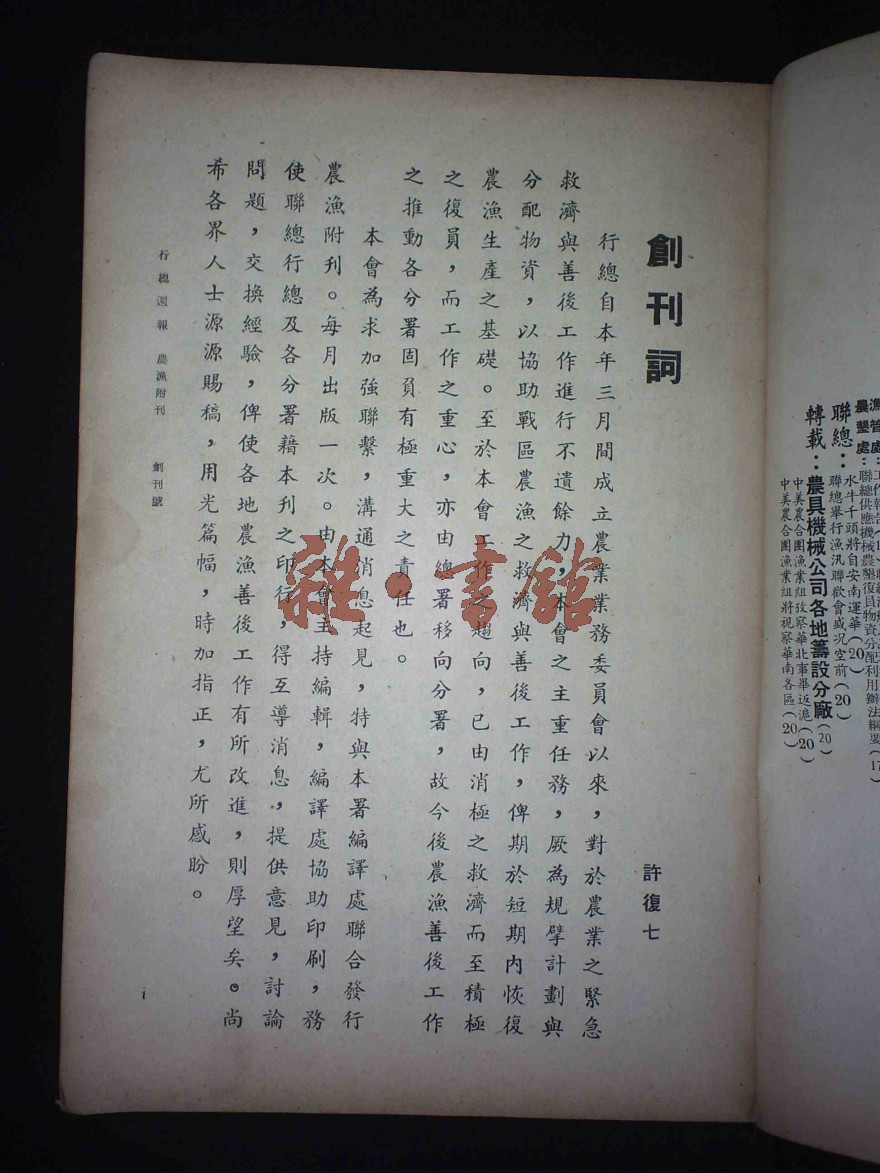 漁管處：
農墾處：聯總供應機械農墾復員物資分配利用辦法綱要(17
水牛千頭將自安南運華(20)
聯總：聯總舉行漁汛聯歡會盛况空前(20)
轉載：農具機械公司各地籌設分廠(20)
中美農合團漁業組攷察華北事畢返滬(20)
中美農合團漁業組將視察華南各區(20)
創刊詞
許復七
行總自本年三月間成立農業業務委員會以來，對於農業之緊急
救濟與善後工作進行不遺餘力，本會之主重任務，厥為規擘計劃與
分配物資，以協助戰區農漁之救濟與善後工作，俾期於短期内恢復
農漁生產之基礎。至於本會工作之趨向，已由消極之救濟而至積極
之復員，而工作之重心，亦由總署移向分署，故今後農漁善後工作
之推動各分署固負有極重大之責任也。
本會為求加強聯繫，溝通消息起見，特與本署編譯處聯合發行
農漁附刊。每月出版一次。由本會主持編輯，編譯處協助印刷，務
使聯總行總及各分署藉本刊之印行，得互導消息，提供意見，討論
問題，交換經驗，俾使各地農漁善後工作有所改進，則厚望矣。尚
希各界人士源源賜稿，用光篇幅，時加指正，尤所感盼。
行總週報 農漁附刊 創刊號
i
雜·書館